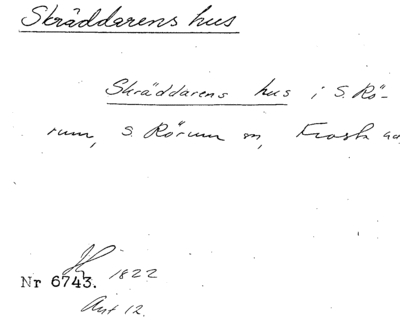 Skräddarens hus
Skräddarens hus i S. Rö-
rum, S. Rörum sn, Frosta
1822
Nr 6743.
Ant 12.